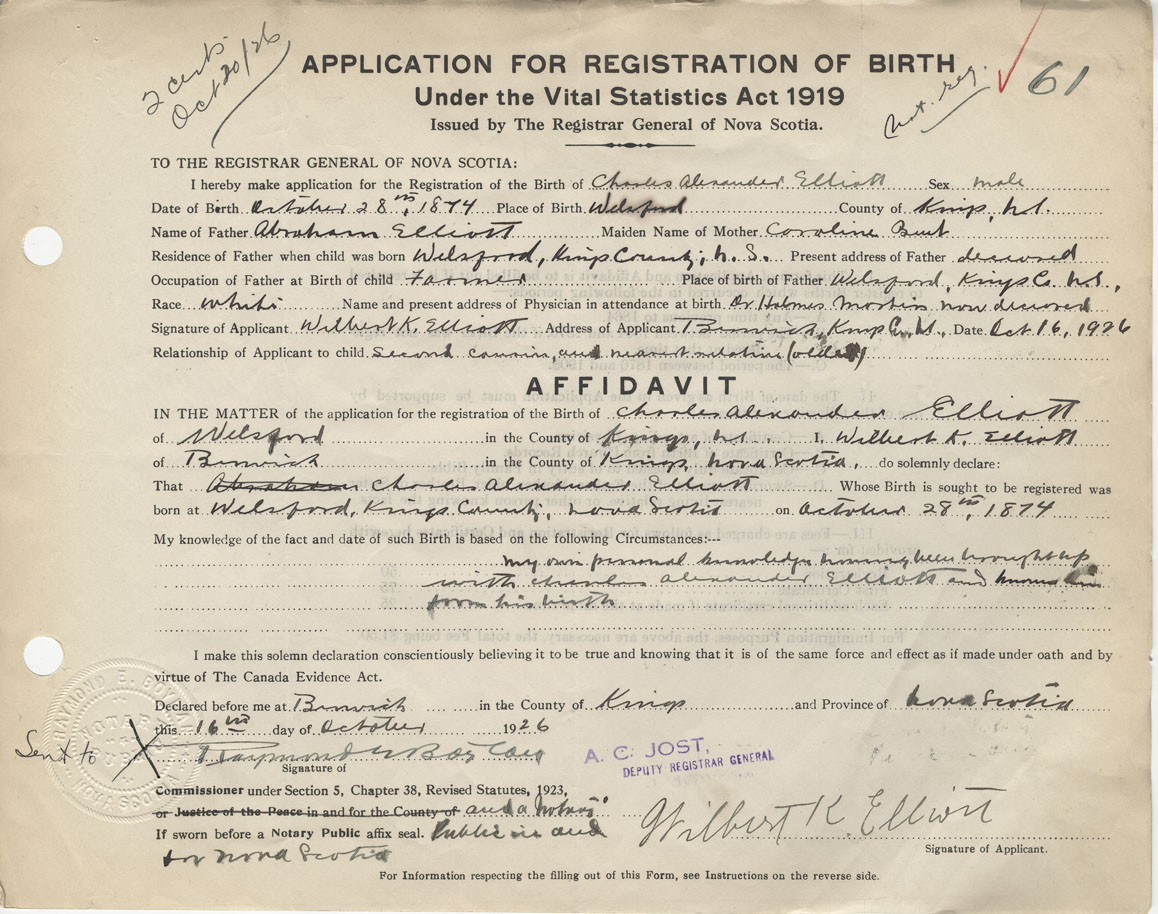 2 certs.
Oct 20/26
APPLICATION FOR REGISTRATION OF BIRTH
not. reg.
61
Under the Vital Statistics Act 1919
Issued by The Registrar General of Nova Scotia.
TO THE REGISTRAR GENERAL OF NOVA SCOTIA:
I hereby make application for the Registration of the Birth of Charles Alexander Elliott Sex male
Date of Birth October 28th, 1874 Place of Birth Welsford County of Kings, N.S.
Name of Father Abraham Elliott Maiden Name of Mother Caroline
Residence of Father when child was born Welsford, Kings County, N.S. Present address of Father deceased
Occupation of Father at Birth of child Farmer Place of birth of Father Welsford, Kings Co. N.S.,
Race white Name and present address of Physician in attendance at birth Dr Holmes now deceased
Signature of Applicant Wilbert K. Elliott Address of Applicant Berwick, Kings Co. N.S., Date Oct 16, 1926
Relationship of Applicant to child Second cousin, and nearest relative (oldest)
AFFIDAVIT
IN THE MATTER of the application for the registration of the Birth of Charles Alexander Elliott
of Welsford in the County of Kings, N.S. I, Wilbert K. Elliott
of Berwick in the County of Kings, Nova Scotia, do solemnly declare:
That Abraham Charles Alexander Elliott Whose Birth is sought to be registered was
born at Welsford, Kings County, Nova Scotia on October 28th, 1874
My knowledge of the fact and date of such Birth is based on the following Circumstances:---
My own personal knowledge having been brought up
with Charles Alexander Elliott and known him
from his birth
I make this solemn declaration conscientiously believing it to be true and knowing that it is of the same force and effect as if made under oath and by
virtue of The Canada Evidence Act.
Declared before me at Berwick in the County of Kings and Province of Nova Scotia
this 16th day of October 1926
Sent to X
Raymond E. Boylan
Signature of
A. C. JOST,
DEPUTY REGISTRAR GENERAL
Commissioner under Section 5, Chapter 38, Revised Statutes, 1923,
or Justice of the Peace in and for the County of and a Notary
If sworn before a Notary Public affix seal. Public in and
for Nova Scotia
Wilbert K. Elliott
Signature of Applicant.
For Information respecting the filling out of this Form, see Instructions on the reverse side.